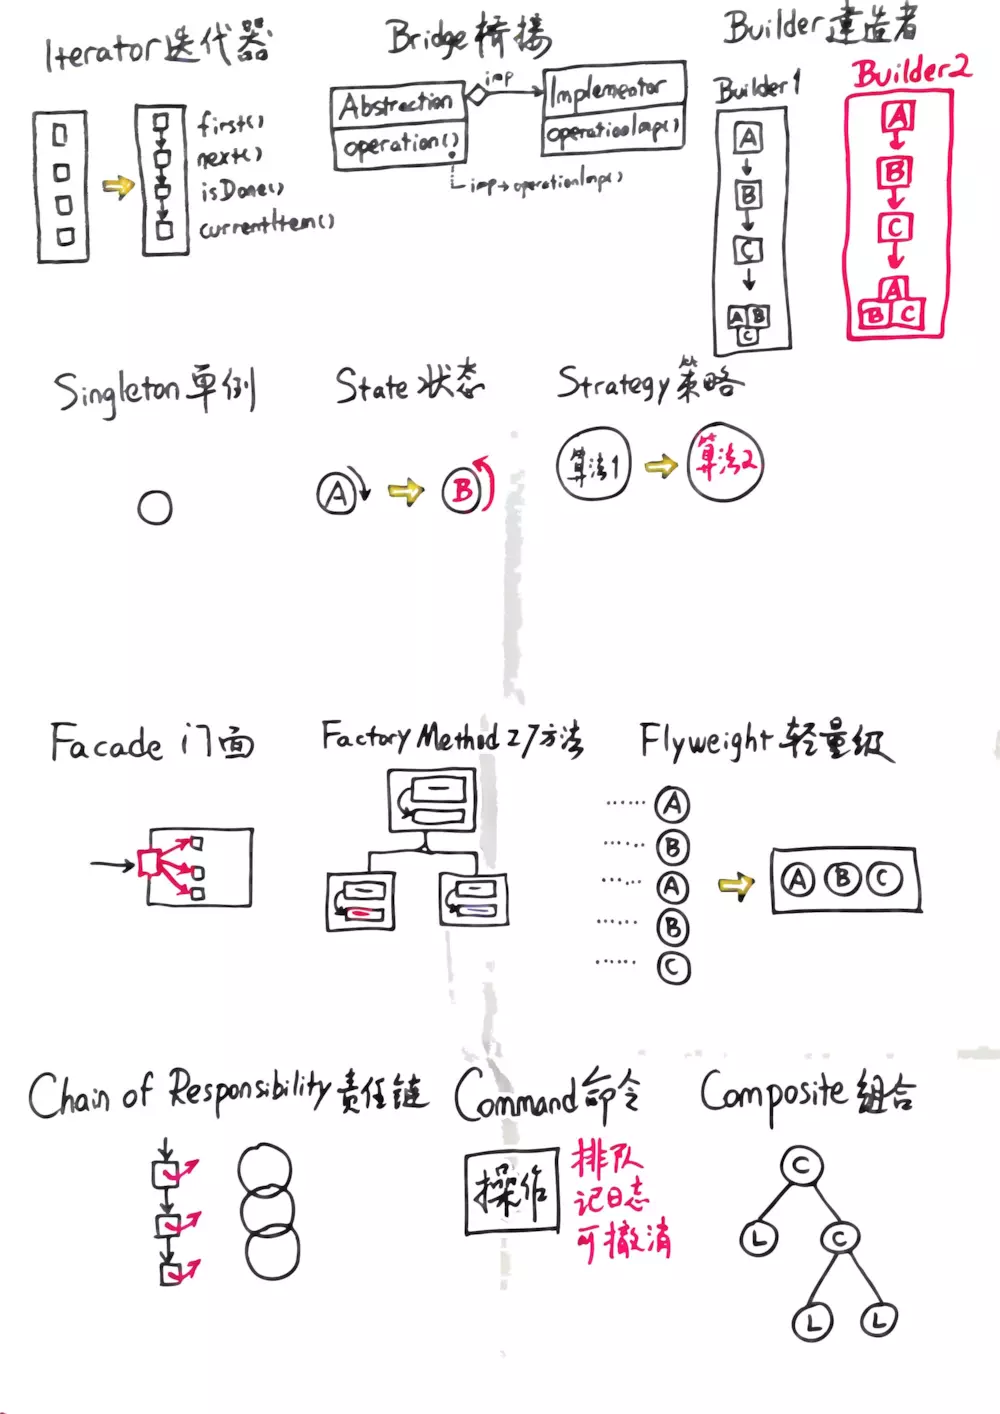 Iterator 迭代器
first()
next()
isDone()
currentItem()
Bridge 桥接
Abstraction
operation()
imp
Implementor
operationImp()
imp→operationImp()
Builder 建造者
Builder1
A
B
C
A B
C
Builder2
A
B
C
A
B C
Singleton 单例
State 状态
A
B
Strategy 策略
算法1
算法2
Facade 门面
Factory Method 工厂方法
Flyweight 轻量级
A
B
A
B
C
A B C
Chain of Responsibility 责任链
Command 命令
操作
排队
记日志
可撤消
Composite 组合
C
L
C
L
L